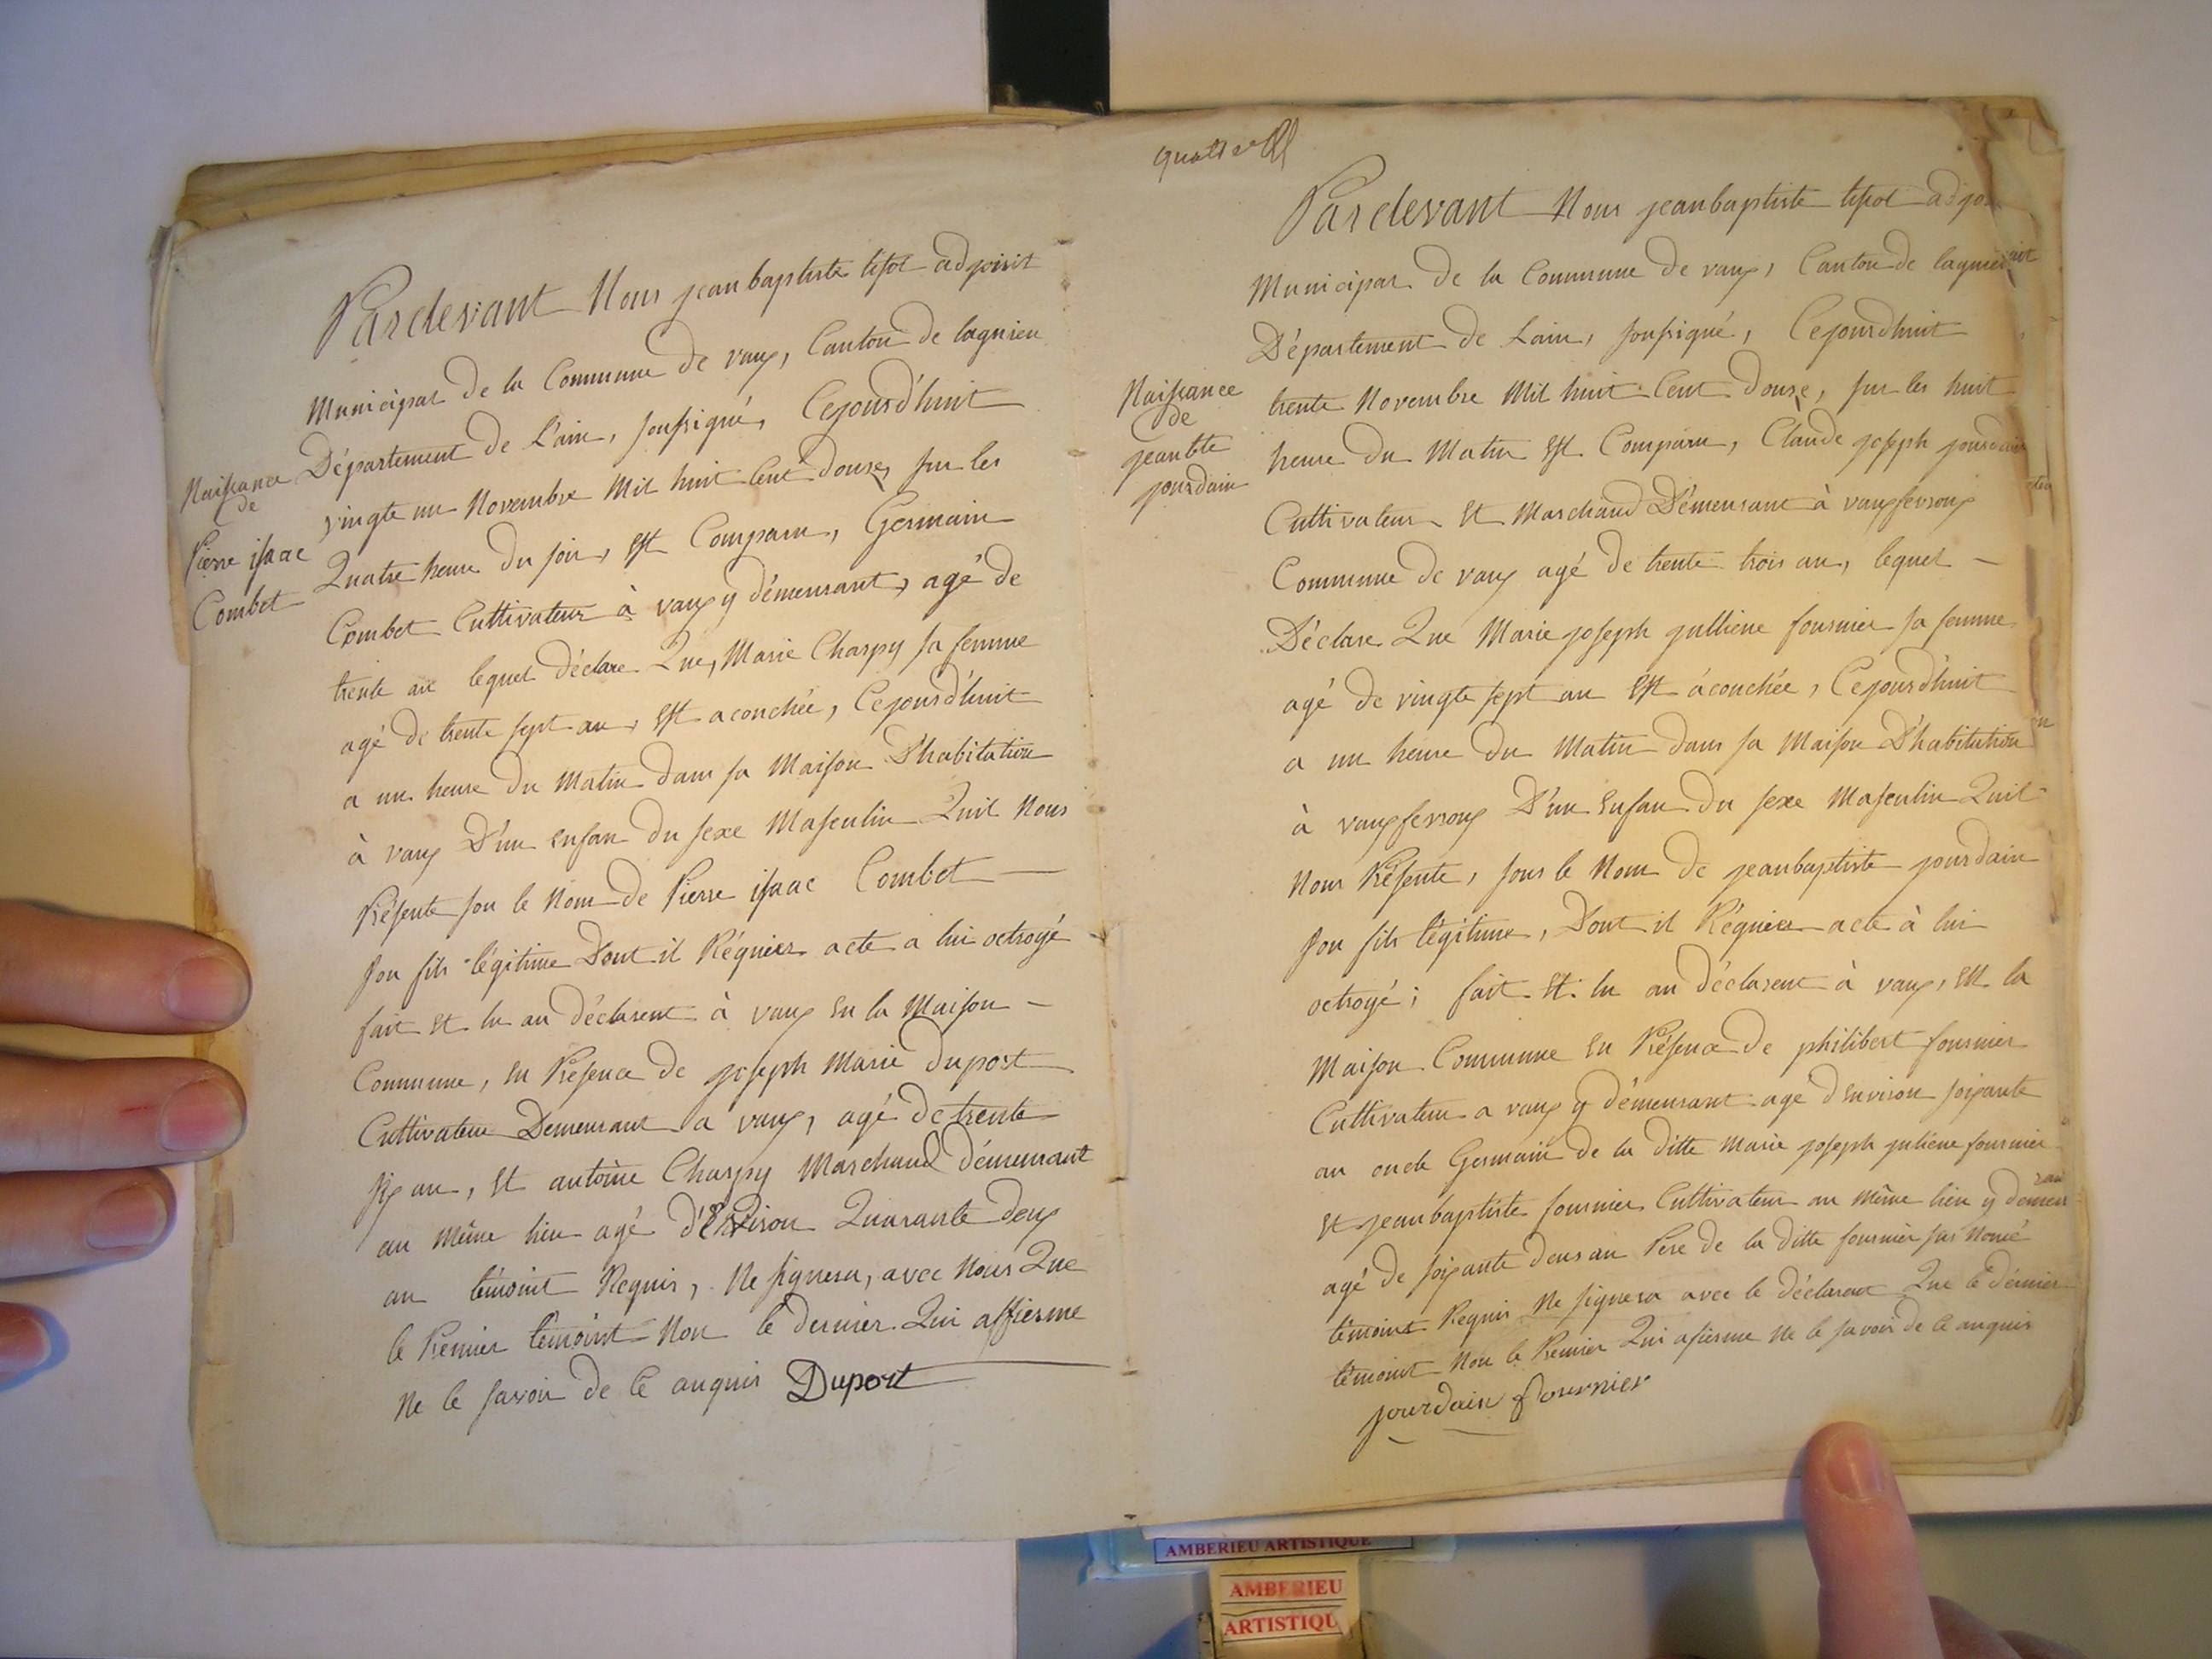 Naissance
de
Pierre isaac
Combet
Pardevant Nous jeanbaptiste tissot adjoint
Municipat de la Commune de vaux, Canton de lagnieu
Département de L'ain, soussigné, Cejourd'huit
vingte un Novembre Mil huit Cent douze, sur les
Quatre heure du soir, est Comparu, Germain
Combet Cultivateur à vaux y démeurant, agé de
trente an lequel déclare Que, Marie Charpy sa femme
agé de trente sept an, est acouchée, Cejourd'huit
a un heure du Matin dans sa Maison D'habitation
à vaux D'un enfan du sexe Masculin Quil Nous
Présente sou le Nom de Pierre isaac Combet
son fils légitime Dont il Réquier acte a lui octroyé
fait et lu au déclarent à vaux en la Maison
Commune, en Présence de joseph Marie Duport
Cultivateur Demeurant a vaux, agé de trente
six an, et antoine Charpy Marchand démeurant
au même lieu agé d'environ Quarante deux
an témoint Requis, Ne signera, avec Nous Que
le Premier témoint Non le dernier Qui affierme
Ne le savoir de Ce anquis Duport
quatre
Naissance
de
jeanbte
jourdain
Pardevant Nous jeanbaptiste tissot adjo
Municipat de la Commune de vaux, Canton de lagnieu
Département de Lain, soussigné, Cejourd'huit
trente Novembre Mil huit Cent douze, sur les huit
heure du Matin est Comparu, Claude joseph jourdain
Cultivateur et Marchand Démeurant à vauxfevroux
Commune de vaux agé de trente trois an, lequel
Déclare Que Marie joseph jullienne fournier sa femme
agé de vingte sept an est acouchée, Cejourd'huit
a un heure du Matin dans sa Maison D'habitation
à vauxfevroux D'un enfan du sexe Masculin Quil
Nous Présente, sous le Nom de jeanbaptiste jourdain
son fils légitime, Dont il Réquier acte à lui
octroyé; fait et lu au déclarent à vaux, en la
Maison Commune en Présence de philibert fournier
Cultivateur a vaux y démeurant agé d'environ soixante
an oncle Germain de la ditte Marie joseph juliene fournier
et jeanbaptiste fournier Cultivateur au même lieu y demeu
agé de soixante deus an Pere de la ditte fournier sus Nomé
témoint Requis Ne signera avec le déclarent Que le dérnier
témoint Non le Premier Qui afierme Ne le savoir de Ce anquis
jourdain fournier
AMBERIEU ARTISTIQUE
AMBERIEU
ARTISTIQU